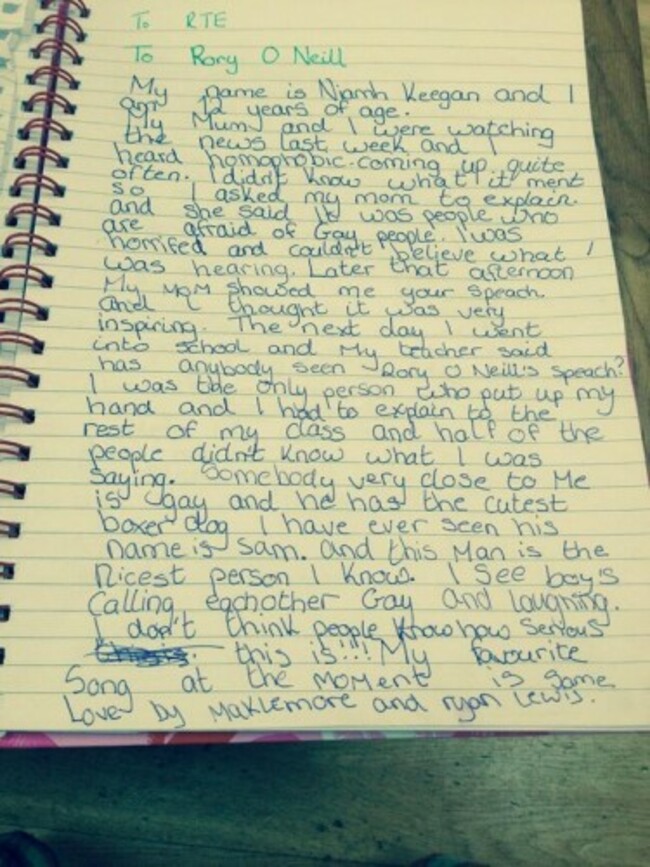 To RTE
To Rory O Neill
My name is Niamh Keegan and I
am 12 years of age.
My Mum and I were watching
the news last week and I
heard homophobic coming up quite
often. I didn't know what it ment
so I asked my mom to explain.
and she said It was people who
are afraid of Gay people. I was
horrifed and couldn't believe what I
was hearing. Later that afternoon
My mom showed me your speach
and I thought it was very
inspiring. The next day I went
into school and My teacher said
has anybody seen Rory O Neill's speach?
I was the only person who put up my
hand and I had to explain to the
rest of my class and half of the
people didn't know what I was
saying. Somebody very close to Me
is gay and he has the cutest
boxer dog I have ever seen his
name is Sam. and this Man is the
nicest person I know. I see boy's
calling eachother Gay and laughing.
I don't think people know how serious
this is!!! My favourite
Song at the moment is Same
Love by Maklemore and ryan Lewis.